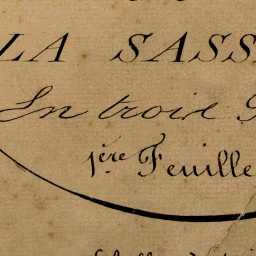 LA SASS
En trois
1ère Feuille